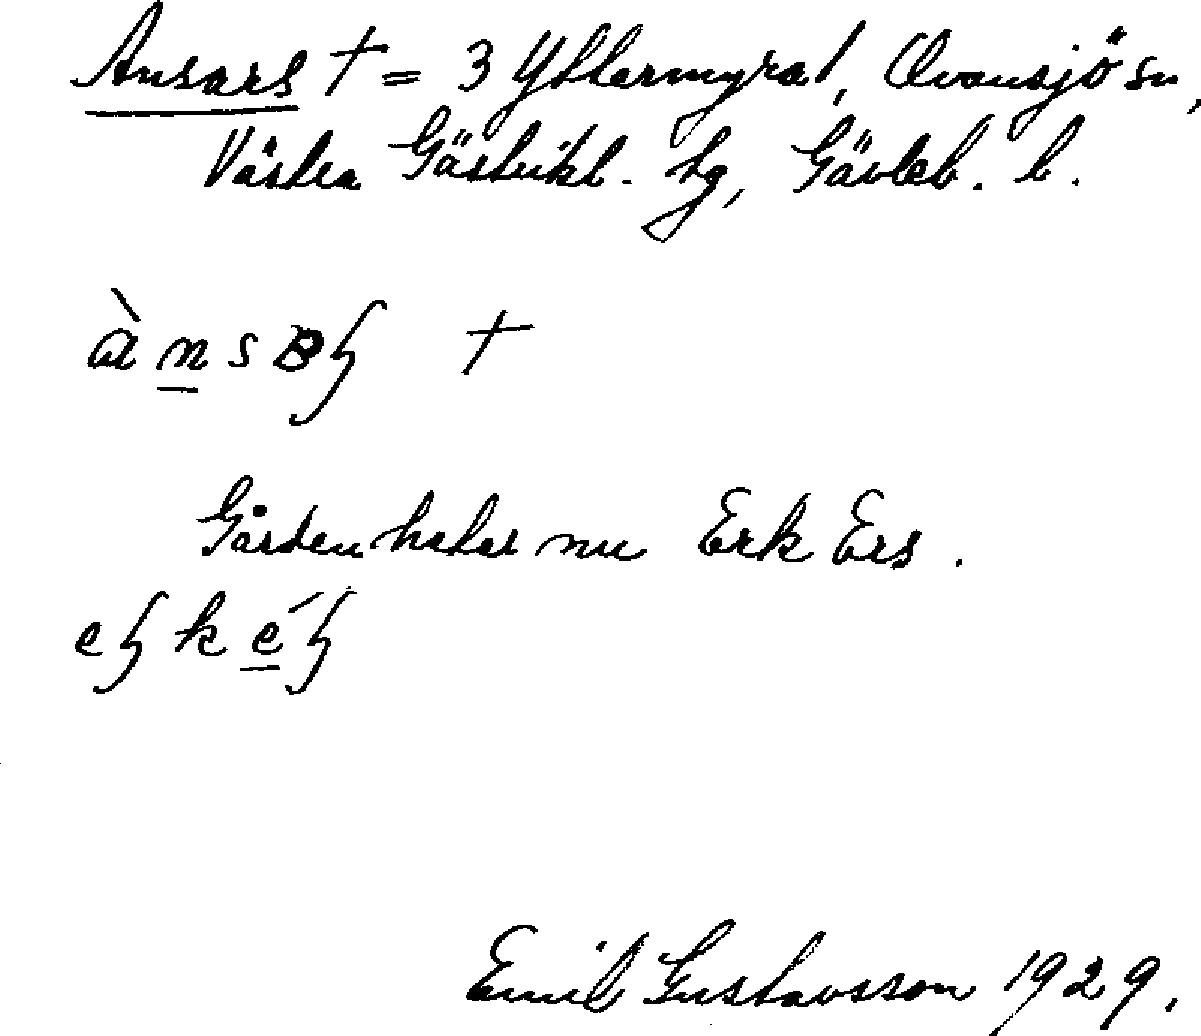 Ansars † = 3 Yttermyra 1, Ovansjö sn,
Västra Gästrikl. hg, Gävleb. l.
à n s
†
Gården heter nu Erk Ers.
Emil Gustavsson 1929.